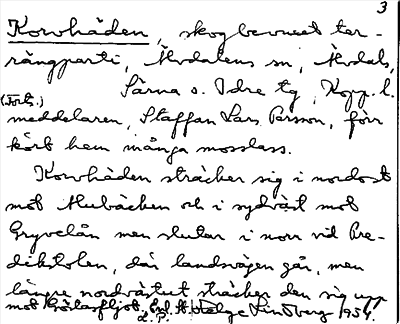 3
Korvhåden, skogbevuxet ter-
rängparti, Älvdalens sn, Älvdals,
Särna o. Idre tg, Kopp. l.
(Forts.)
meddelaren, Staffan Lars Persson, förr
kört hem många mosslass.
Korvhåden sträcker sig i nordost
mot Mubäcken och i sydväst mot
Gryvelån men slutar i norr vid Pre-
dikstolen, där landsvägen går, men
längre nordvästut sträcker den sig upp
mot Görtasfljot, Helge Lindberg 1954.
L. P.